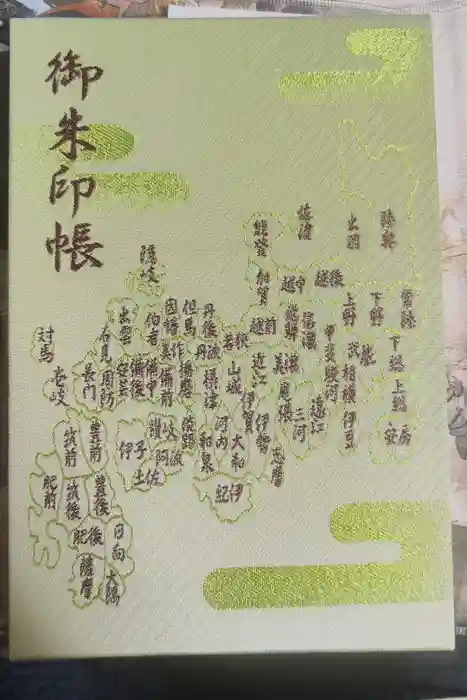 御朱印帳
陸奥
出羽
佐渡
能登
隠岐
常陸
下野
上野
越後
越中
加賀
下総
上総
安房
武蔵
相模
伊豆
甲斐
駿河
信濃
飛騨
越前
若狭
遠江
三河
尾張
美濃
近江
志摩
伊勢
伊賀
山城
大和
紀伊
河内
和泉
摂津
丹後
丹波
但馬
播磨
淡路
因幡
美作
備前
伯者
備中
備後
出雲
安芸
石見
周防
長門
讃岐
阿波
伊予
土佐
対馬
壱岐
豊前
筑前
豊後
筑後
肥前
肥後
日向
大隅
薩摩